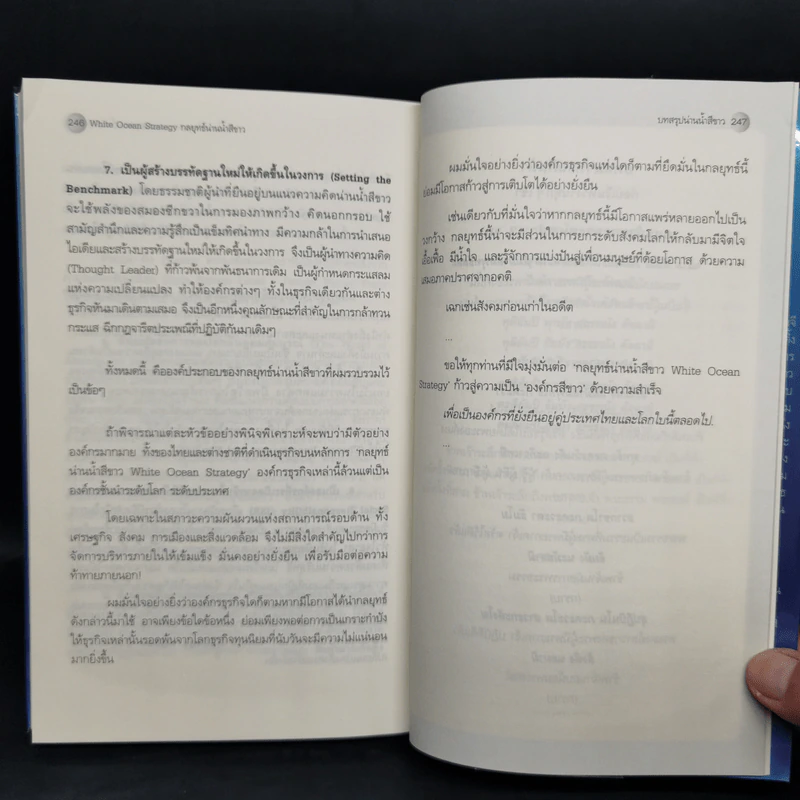 246 White Ocean Strategy กลยุทธ์น่านน้ำสีขาว
7. เป็นผู้สร้างบรรทัดฐานใหม่ให้เกิดขึ้นในวงการ (Setting the
Benchmark) โดยธรรมชาติผู้นำที่ยืนอยู่บนแนวความคิดน่านน้ำสีขาว
จะใช้พลังของสมองซีกขวาในการมองภาพกว้าง คิดนอกกรอบ ใช้
สามัญสำนึกและความรู้สึกเป็นเข็มทิศนำทาง มีความกล้าในการนำเสนอ
ไอเดียและสร้างบรรทัดฐานใหม่ให้เกิดขึ้นในวงการ จึงเป็นผู้นำทางความคิด
(Thought Leader) ที่ก้าวพ้นจากพันธนาการเดิม เป็นผู้กำหนดกระแสลม
แห่งความเปลี่ยนแปลง ทำให้องค์กรต่างๆ ทั้งในธุรกิจเดียวกันและต่าง
ธุรกิจหันมาเดินตามเสมอ จึงเป็นอีกหนึ่งคุณลักษณะที่สำคัญในการกล้าทวน
กระแส ฉีกกฎจารีตประเพณีที่ปฏิบัติกันมาเดิมๆ
ทั้งหมดนี้ คือองค์ประกอบของกลยุทธ์น่านน้ำสีขาวที่ผมรวบรวมไว้
เป็นข้อๆ
ถ้าพิจารณาแต่ละหัวข้ออย่างพินิจพิเคราะห์จะพบว่ามีตัวอย่าง
องค์กรมากมาย ทั้งของไทยและต่างชาติที่ดำเนินธุรกิจบนหลักการ 'กลยุทธ์
น่านน้ำสีขาว White Ocean Strategy' องค์กรธุรกิจเหล่านี้ล้วนแต่เป็น
องค์กรชั้นนำระดับโลก ระดับประเทศ
โดยเฉพาะในสภาวะความผันผวนแห่งสถานการณ์รอบด้าน ทั้ง
เศรษฐกิจ สังคม การเมืองและสิ่งแวดล้อม จึงไม่มีสิ่งใดสำคัญไปกว่าการ
จัดการบริหารภายในให้เข้มแข็ง มั่นคงอย่างยั่งยืน เพื่อรับมือต่อความ
ท้าทายภายนอก!
ผมมั่นใจอย่างยิ่งว่าองค์กรธุรกิจใดก็ตามหากมีโอกาสได้นำกลยุทธ์
ดังกล่าวนี้มาใช้ อาจเพียงข้อใดข้อหนึ่ง ย่อมเพียงพอต่อการเป็นเกราะกำบัง
ให้ธุรกิจเหล่านั้นรอดพ้นจากโลกธุรกิจทุนนิยมที่นับวันจะมีความไม่แน่นอน
มากยิ่งขึ้น
บทสรุปน่านน้ำสีขาว 247
ผมมั่นใจอย่างยิ่งว่าองค์กรธุรกิจแห่งใดก็ตามที่ยึดมั่นในกลยุทธ์นี้
ย่อมมีโอกาสก้าวสู่การเติบโตได้อย่างยั่งยืน
เช่นเดียวกับที่มั่นใจว่าหากกลยุทธ์นี้มีโอกาสแพร่หลายออกไปเป็น
วงกว้าง กลยุทธ์นี้น่าจะมีส่วนในการยกระดับสังคมโลกให้กลับมามีจิตใจ
เอื้อเฟื้อ มีน้ำใจ และรู้จักการแบ่งปันสู่เพื่อนมนุษย์ที่ด้อยโอกาส ด้วยความ
เสมอภาคปราศจากอคติ
เฉกเช่นสังคมก่อนเก่าในอดีต
...
ขอให้ทุกท่านที่มีใจมุ่งมั่นต่อ 'กลยุทธ์น่านน้ำสีขาว White Ocean
Strategy' ก้าวสู่ความเป็น 'องค์กรสีขาว' ด้วยความสำเร็จ
เพื่อเป็นองค์กรที่ยั่งยืนอยู่คู่ประเทศไทยและโลกใบนี้ตลอดไป.
...